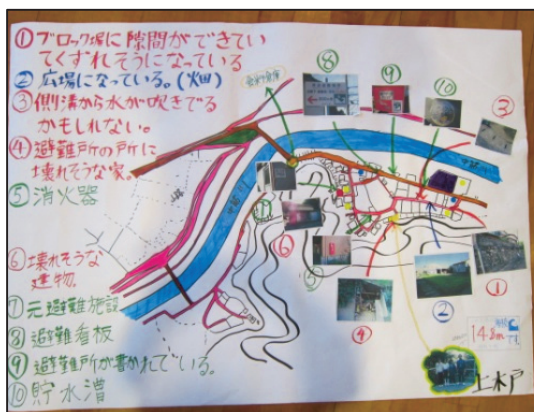 ① ブロック塀に隙間ができてい
てくずれそうになっている
② 広場になっている。(畑)
③ 側溝から水が吹きでる
かもしれない。
④ 避難所の所に
壊れそうな家。
⑤ 消火器
⑥ 壊れそうな
建物。
⑦ 元避難施設
⑧ 避難看板
⑨ 避難所が書かれている。
⑩ 貯水漕
⑧
⑨
⑩
③
⑦
⑥
⑤
④
②
①
14.8m
です。
上木戸